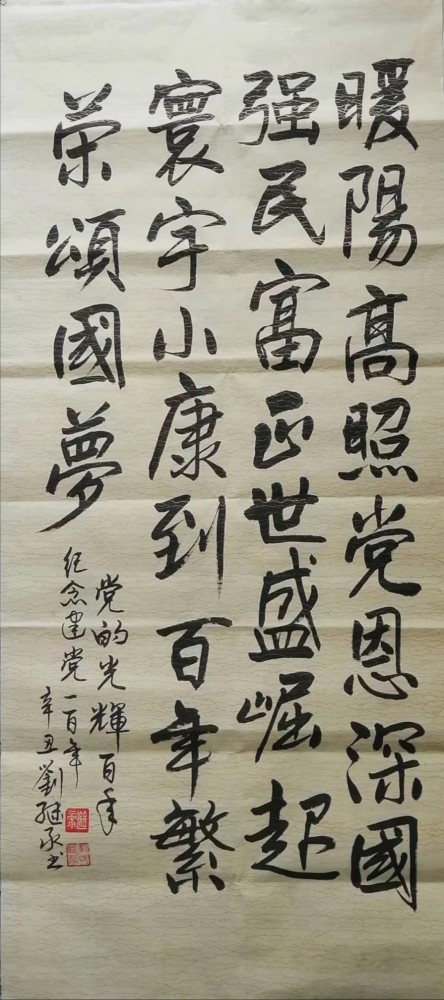 暖陽高照党恩深國
强民富正世盛崛起
寰宇小康到百年繁
荣頌國夢
党的光輝百年
纪念建党一百年
辛丑劉继承书